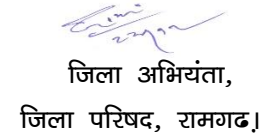 जिला अभियंता,
जिला परिषद, रामगढ।